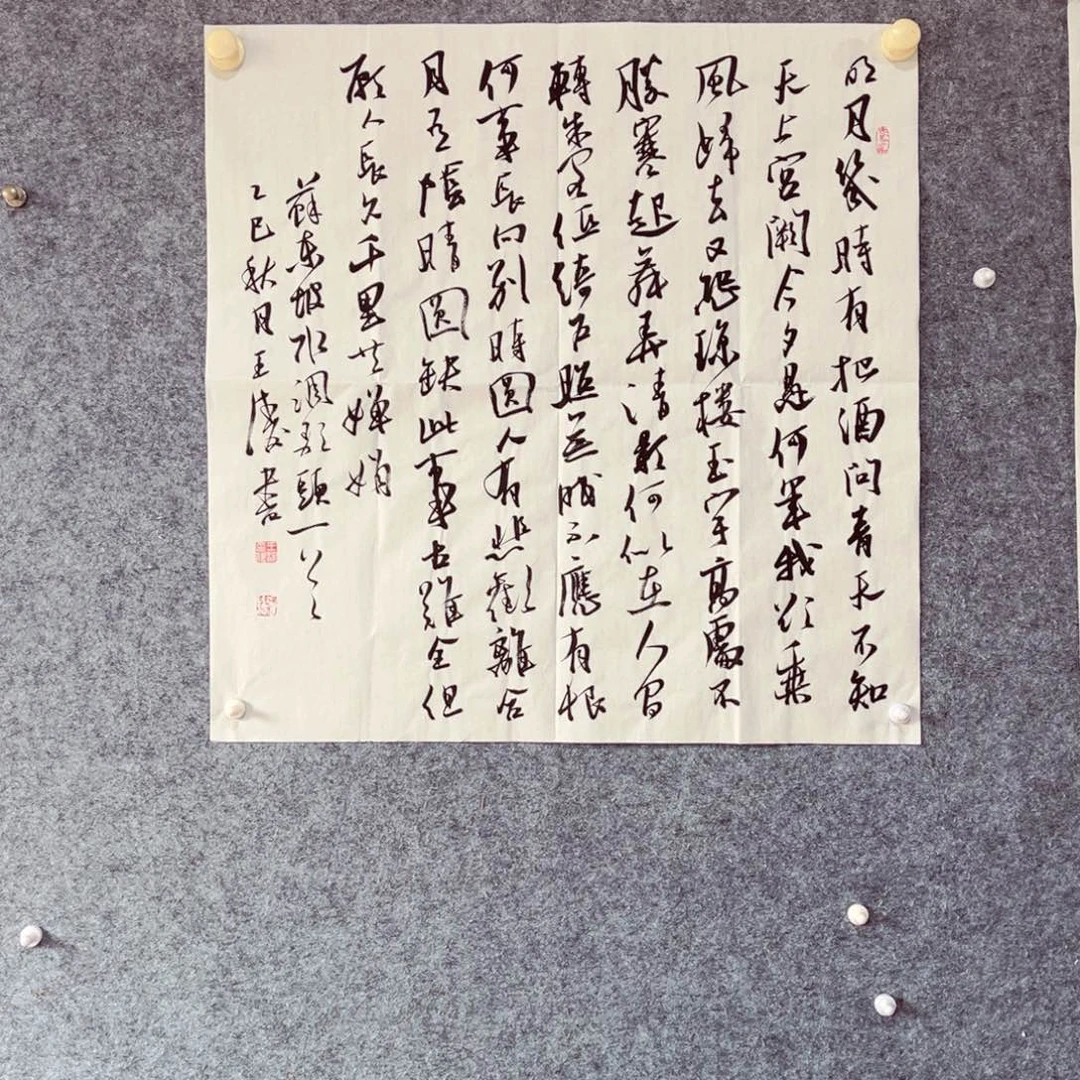 明月幾時有把酒問青天不知
天上宮闕今夕是何年我欲乘
風歸去又恐瓊樓玉宇高處不
勝寒起舞弄清影何似在人間
轉朱閣低綺戶照無眠不應有恨
何事長向別時圓人有悲歡離合
月有陰晴圓缺此事古難全但
願人長久千里共嬋娟
蘇東坡水調歌頭一
乙巳秋月王書